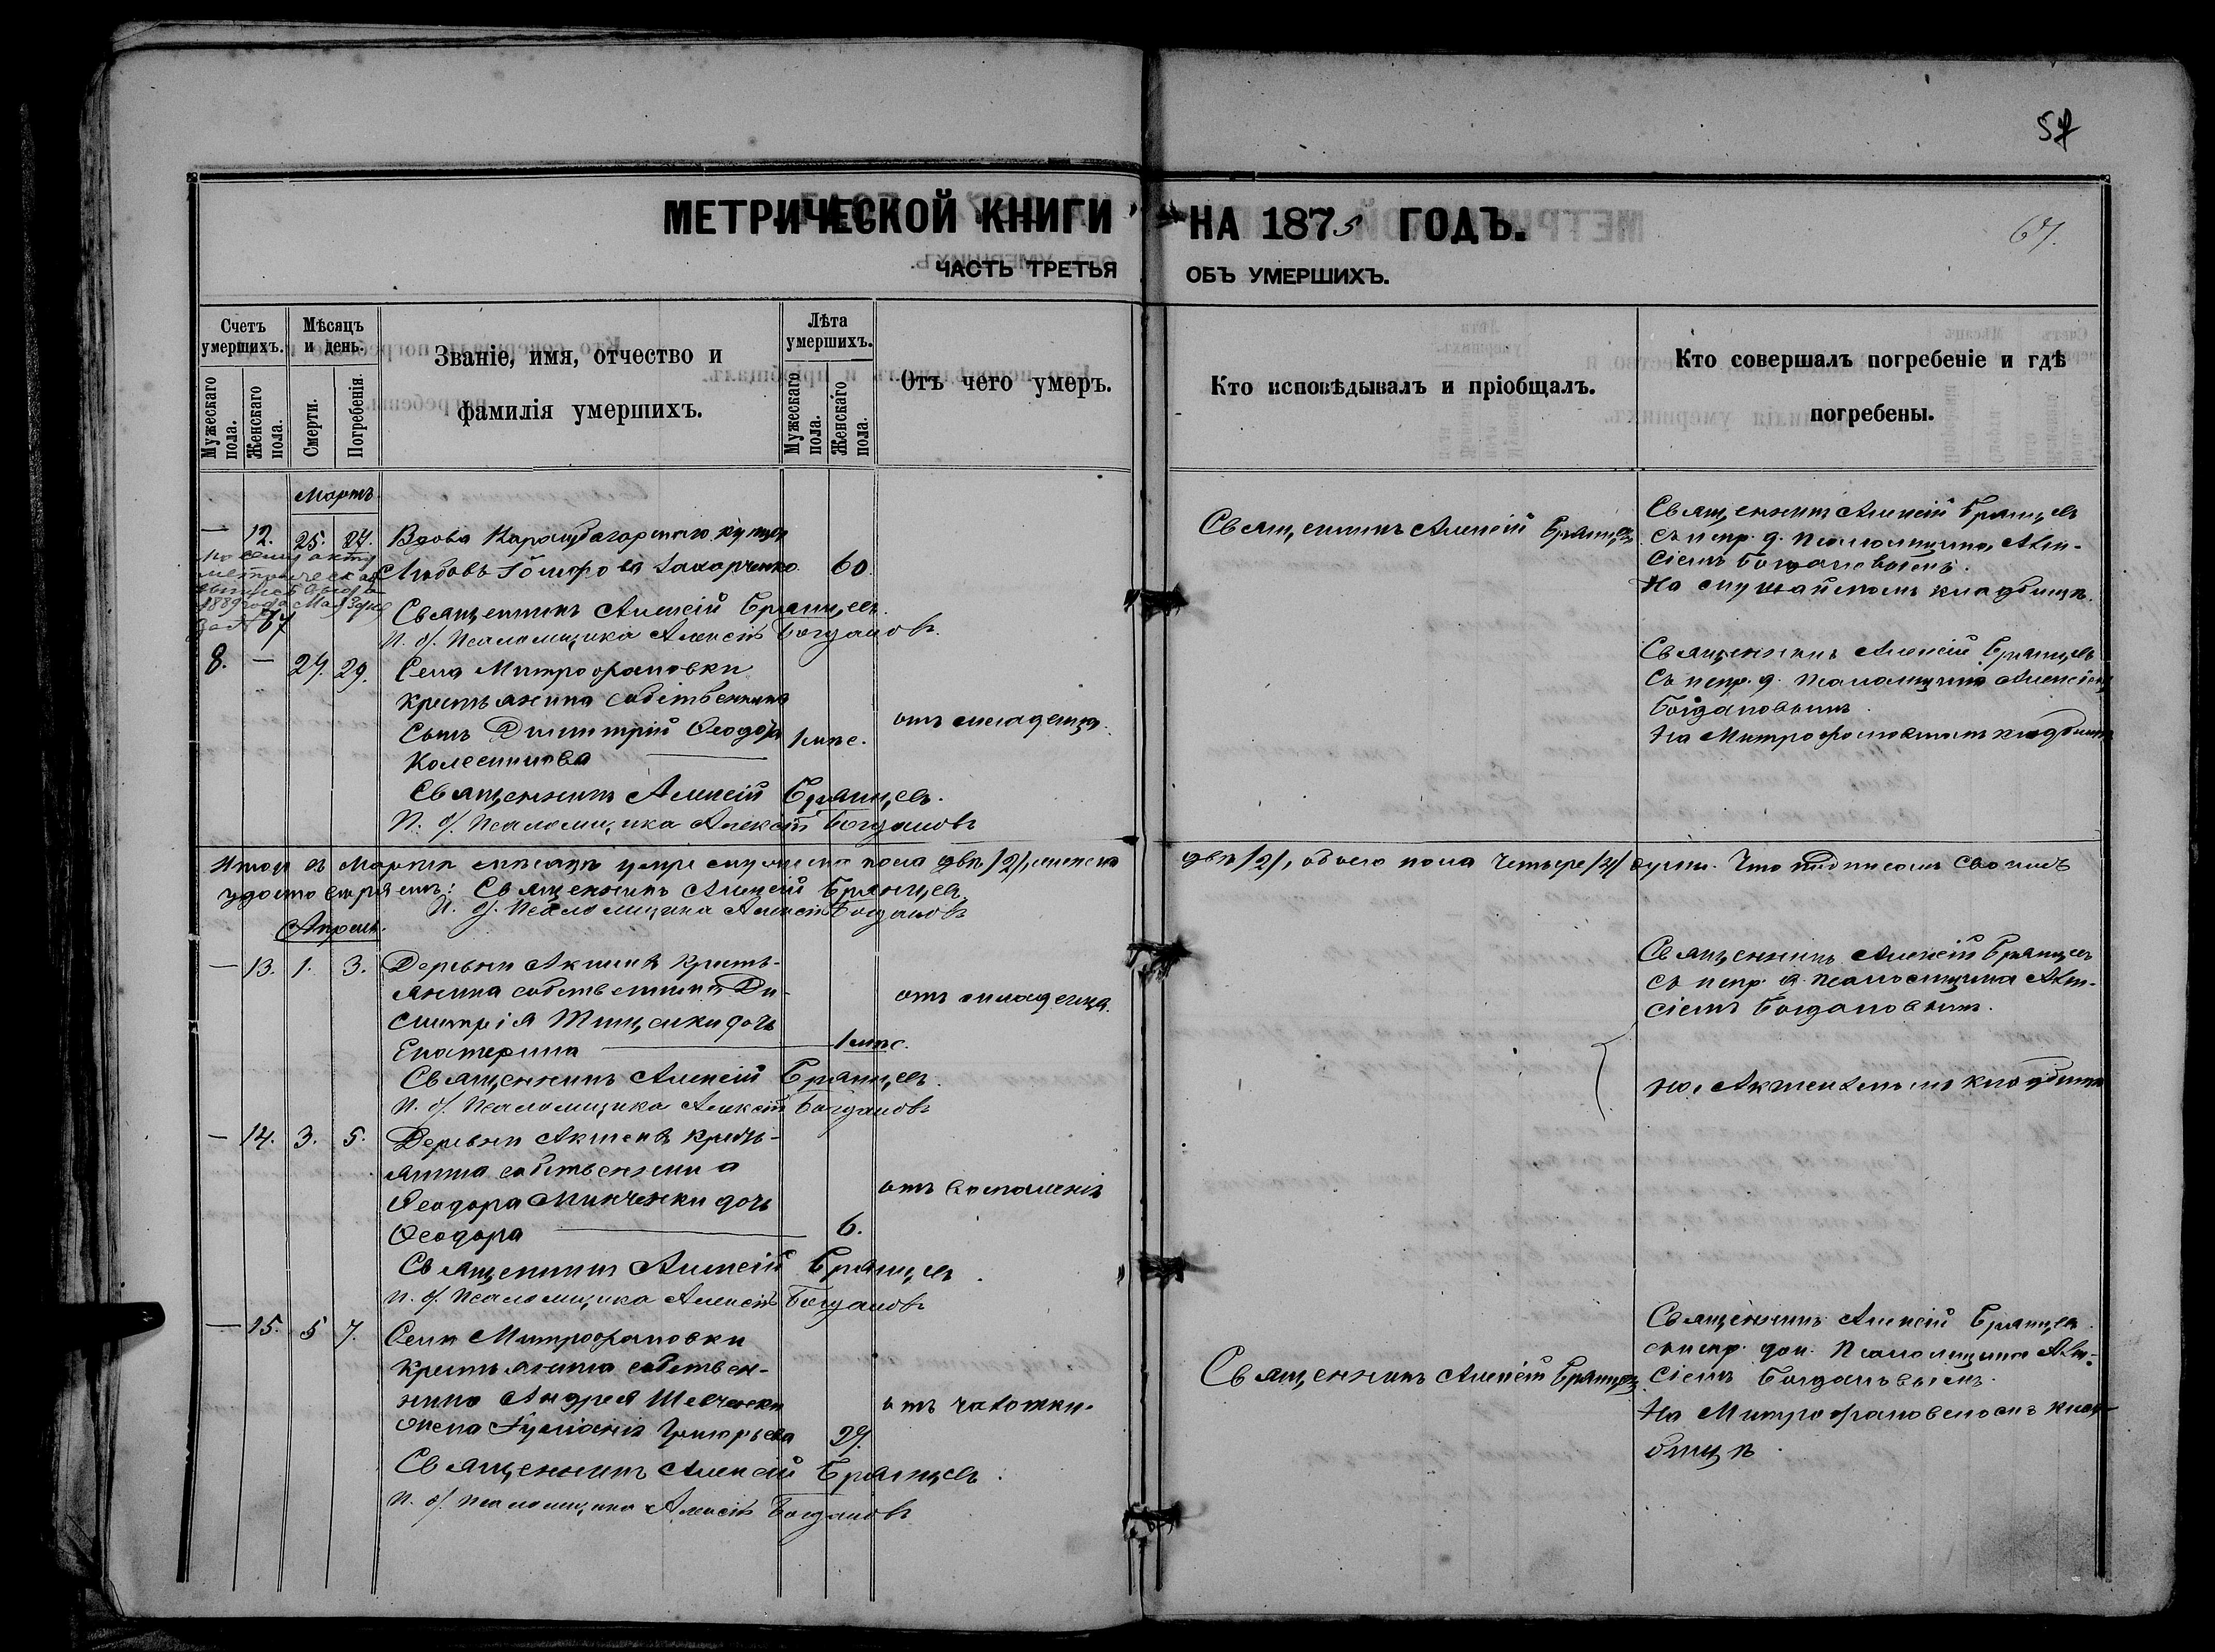 57
МЕТРИЧЕСКОЙ КНИГИ НА 1875 ГОДЪ.
67.
ЧАСТЬ ТРЕТЬЯ ОБЪ УМЕРШИХЪ.
Счетъ умершихъ.
Мужескаго пола.
Женскаго пола.
Мѣсяцъ и день.
Смерти.
Погребенія.
Званіе, имя, отчество и
фамилія умершихъ.
Лѣта умершихъ.
Мужескаго пола.
Женскаго пола.
Отъ чего умеръ.
Кто исповѣдывалъ и пріобщалъ.
Кто совершалъ погребеніе и гдѣ
погребены.
Мартъ
— 12. 25. 27. Вдова купца
Любовь Захарченко 60.
По сему акту
метрическая
1889 года Мая 3 дня
за № 67
Священникъ Алексій Брянцевъ.
И. д. Псаломщика Алексѣй Богдановъ.
Священникъ Алексій Брянцевъ
Священникъ Алексій Брянцевъ
съ испр. д. псаломщика Алек-
сіемъ Богдановымъ.
На кладбищѣ.
8. — 27. 29. Села Митрофановки
крестьянина собственника
сынъ Димитрій Ѳеодора
Колесникова
1 мѣс.
отъ младенца.
Священникъ Алексій Брянцевъ.
И. д. Псаломщика Алексѣй Богдановъ
Священникъ Алексій Брянцевъ
съ испр. д. псаломщика Алексіемъ
Богдановымъ.
На Митрофановскомъ кладбищѣ
Итого въ Мартѣ мѣсяцѣ умерло мужеска пола двѣ /2/, женска двѣ /2/, обоего пола четыре /4/ души. Что подписомъ своимъ
удостовѣряемъ: Священникъ Алексій Брянцевъ.
И. д. Псаломщика Алексѣй Богдановъ
Апрель.
— 13. 1. 3. Деревни Акшенъ кресть-
янина собственника Ди-
митрія дочь
Екатерина
1 мѣс.
отъ младенца.
Священникъ Алексій Брянцевъ.
И. д. Псаломщика Алексѣй Богдановъ
Священникъ Алексій Брянцевъ
съ испр. д. псаломщика Алек-
сіемъ Богдановымъ.
на кладбищѣ
— 14. 3. 5. Деревни Акшенъ кресть-
янина собственника
Ѳеодора Минченки дочь
Ѳеодора
6.
отъ воспаленія
Священникъ Алексій Брянцевъ.
И. д. Псаломщика Алексѣй Богдановъ
— 15. 5 7. Села Митрофановки
крестьянина собствен-
ника Андрея Шевченки
жена Григорьева 27.
отъ чахотки.
Священникъ Алексій Брянцевъ.
И. д. Псаломщика Алексѣй Богдановъ
Священникъ Алексій Брянцевъ
Священникъ Алексій Брянцевъ
съ испр. дол. Псаломщика Алек-
сіемъ Богдановымъ.
На Митрофановскомъ клад-
бищѣ.